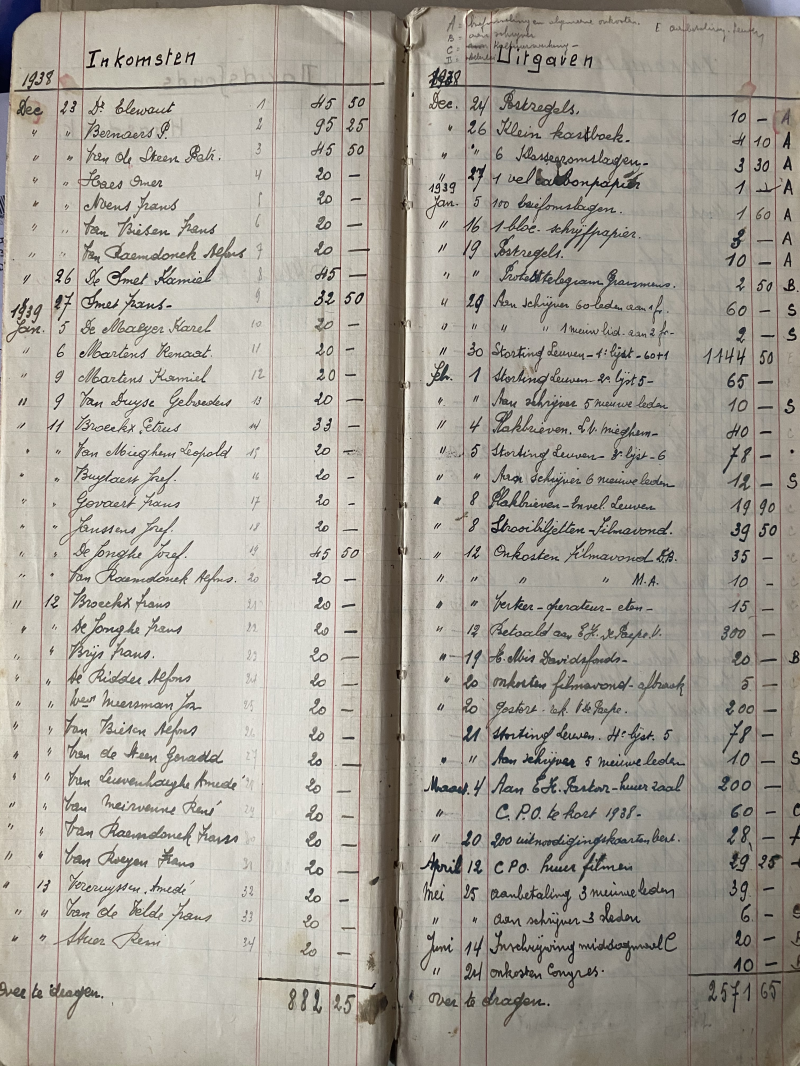 Inkomsten
1938
Dec 23 Dr Elewaut 1 45 50
" " Bernaers P. 2 95 25
" " Van de Steen Petr. 3 45 50
" " Haes Omer 4 20 —
" " Nvens Frans 5 20 —
" " Van Biesen Frans 6 20 —
" " Van Raemdonck Alfons 7 20 —
" 26 De Smet Kamiel 8 45 —
" 27 Smet Frans - 9 32 50
1939
Jan. 5 De Maeyer Karel 10 20 —
" 6 Martens Renaat. 11 20 —
" 9 Martens Kamiel 12 20 —
" 9 Van Duyse Gebroeders 13 20 —
" 11 Broeckx Petrus 14 33 —
" " Van Mieghem Leopold 15 20 —
" " Buytaert Jozef. 16 20 -
" " Govaert Frans 17 20 -
" " Janssens Jozef. 18 20 —
" " De Jonghe Jozef. 19 45 50
" " Van Raemdonck Alfons. 20 20 —
" 12 Broeckx Frans 21 20 —
" " De Jonghe Frans 22 20 —
" " Brijs Frans. 23 20 —
" " De Ridder Alfons 24 20 —
" " Wwe Meersman Jos 25 20 —
" " Van Biesen Alfons 26 20 —
" " Van de Steen Geradd 27 20 —
" " Van Leuvenhaeghe Amedé 28 20 —
" " Van Meirvenne René 29 20 —
" " Van Raemdonck Frans 30 20 —
" " Van Roeyen Frans 31 20 —
" 13 Vercruyssen Amedé 32 20 —
" " Van de Velde Frans 33 20 —
" " Remi 34 20 —
Over te dragen. 882 25
A = algemeene onkosten.
B = aan schrijver
C =
D =
E
Uitgaven
1938
Dec. 24 Postzegels. 10 — A
" 26 Klein kasboek - 4 10 A
" " 6 Klasseeromslagen - 3 30 A
" 27 1 vel carbonpapier 1 — A
1939
Jan. 5 100 briefomslagen. 1 60 A
" 16 1 bloc. schrijfpapier. 3 — A
" 19 Postzegels. 10 — A
" " Protesttelegram Grausmens. 2 50 B.
" 29 Aan schrijver 60 leden aan 1 fr. 60 — S
" " " " 1 nieuw lid. aan 2 fr - 2 — S
" 30 Storting Leuven - 1e lijst - 60+1 1144 50
Feb. 1 Storting Leuven - 2e lijst 5 - 65 —
" " Aan schrijver 5 nieuwe leden 10 — S
" 4 Plakbrieven. L.V. Mieghem - 40 —
" 5 Storting Leuven - 3e lijst - 6 78 — "
" " Aan schrijver 6 nieuwe leden 12 — S
" 8 Plakbrieven - Envel Leuven 19 90
" 8 Strooibiljetten - Filmavond. 39 50
" 12 Onkosten filmavond D.B. 35 —
" " " " M.A. 10 —
" " Verker - operateur - eten - 15 —
" 12 Betaald aan E.H. De Paepe V. 300 —
" 19 H. Mis Davidsfonds - 20 — B
" 20 onkosten filmavond - afbraak 5 —
" 20 Gestort rek. V. De Paepe. 200 —
21 storting Leuven. 4e lijst. 5 78 —
" " Aan schrijver 5 nieuwe leden 10 — S
Maart. 4 Aan E.H. Pastor - huur zaal 200 —
" C.P.O. te kort 1938 - 60 — C
" 20 200 uitnoodigingskaarten best. 28 — +
April 12 C.P.O. huur filmen 29 25 +
Mei 25 aanbetaling 3 nieuwe leden 39 —
" " aan schrijver 3 Leden 6 — S
Juni 14 Inschrijving middagmaal C 20 — B
" 24 onkosten Congres. 10 — B
over te dragen. 2571 65